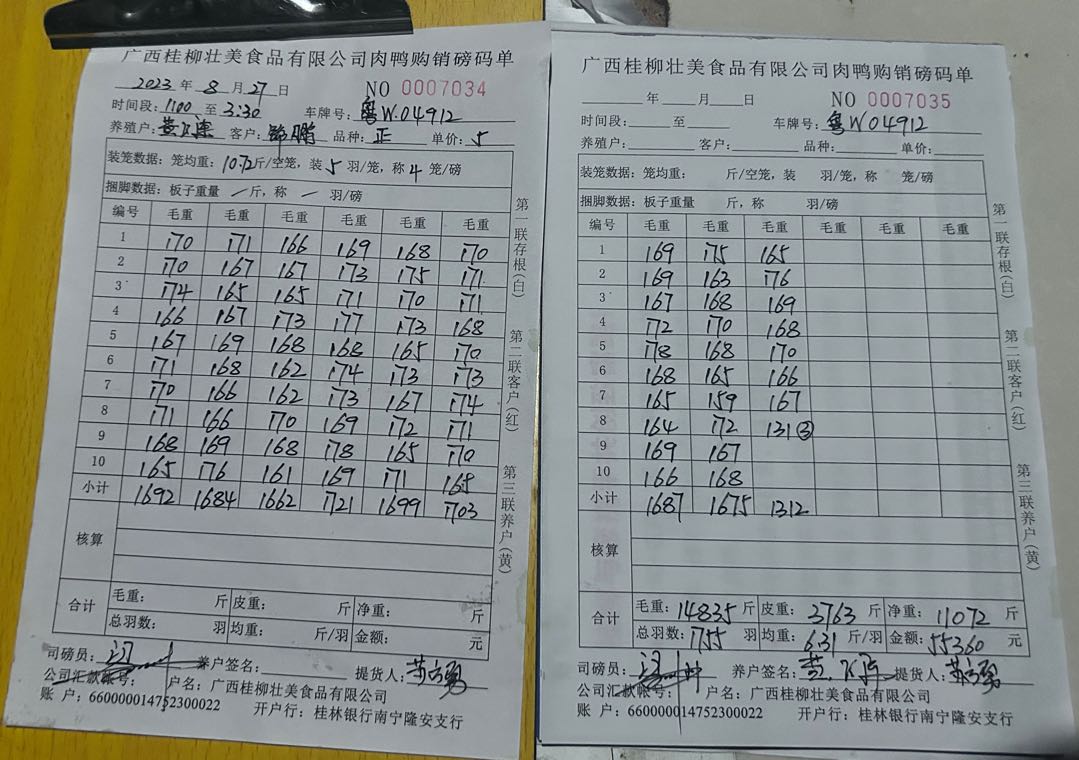 广西桂柳壮美食品有限公司肉鸭购销磅码单
2023 年 8 月 27 日 NO 0007034
时间段: 1100 至 3:30 车牌号: 粤W.04912
养殖户: 客户: 品种: 正 单价: 5
装笼数据: 笼均重: 10.72 斤/空笼, 装 5 羽/笼, 称 4 笼/磅
捆脚数据: 板子重量 — 斤, 称 — 羽/磅
编号 毛重 毛重 毛重 毛重 毛重 毛重
1 170 171 166 169 168 170
2 170 167 167 173 175 171
3 174 165 165 171 170 171
4 166 167 173 177 173 168
5 167 169 168 168 165 170
6 171 168 162 174 173 173
7 170 166 162 173 167 174
8 171 166 170 169 172 171
9 168 169 168 178 165 170
10 165 176 161 169 171 165
小计 1692 1684 1662 1721 1699 1703
核算
合计 毛重: 斤 皮重: 斤 净重: 斤
总羽数: 羽 均重: 斤/羽 金额: 元
司磅员: 养户签名: 提货人:
公司汇款帐号: 户名: 广西桂柳壮美食品有限公司
账 户: 660000014752300022 开户行: 桂林银行南宁隆安支行
第一联存根(白)
第二联客户(红)
第三联养户(黄)
广西桂柳壮美食品有限公司肉鸭购销磅码单
年 月 日 NO 0007035
时间段: 至 车牌号: 粤W04912
养殖户: 客户: 品种: 单价:
装笼数据: 笼均重: 斤/空笼, 装 羽/笼, 称 笼/磅
捆脚数据: 板子重量 斤, 称 羽/磅
编号 毛重 毛重 毛重 毛重 毛重 毛重
1 169 175 165
2 169 163 176
3 167 168 169
4 172 170 168
5 178 168 170
6 168 165 166
7 165 159 167
8 164 172 131③
9 169 167
10 166 168
小计 1687 1675 1312
核算
合计 毛重: 14835 斤 皮重: 3763 斤 净重: 11072 斤
总羽数: 1755 羽 均重: 6.31 斤/羽 金额: 55360 元
司磅员: 养户签名: 提货人:
公司汇款帐号: 户名: 广西桂柳壮美食品有限公司
账 户: 660000014752300022 开户行: 桂林银行南宁隆安支行
第一联存根(白)
第二联客户(红)
第三联养户(黄)